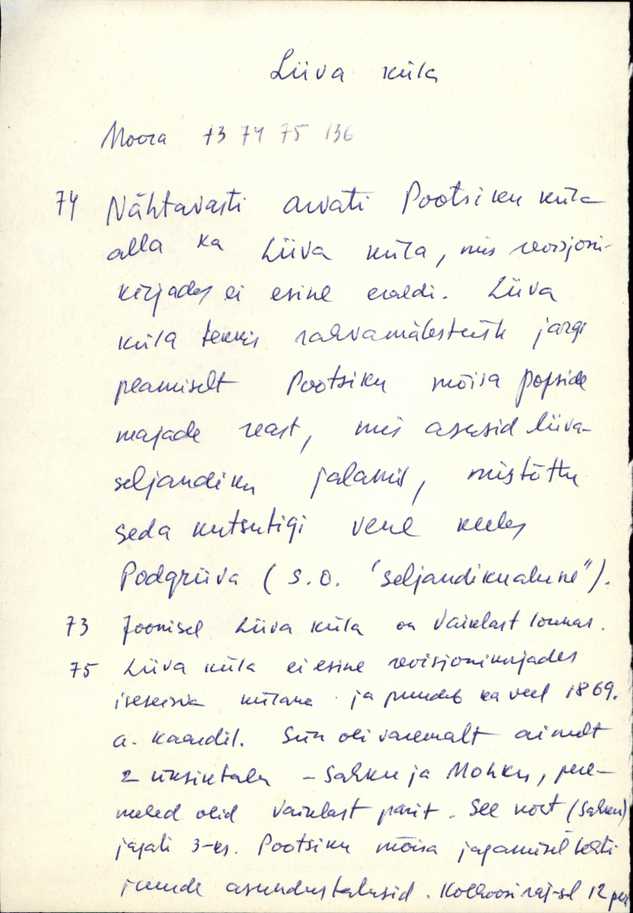 Liiva küla
Moora 73 74 75 136
74 Nähtavasti arvati Pootsiku küla
alla ka Liiva küla, mis revisjoni-
kirjades ei esine eraldi. Liiva
küla tekkis rahvamälestuste järgi
peamiselt Pootsiku mõisa popside
majade reast, mis asusid liiva-
seljandiku jalamil, mistõttu
seda kutsutigi vene keeles
Podgriiva (s.o. "seljandikualune").
73 Joonisel Liiva küla on Väikelast lõunas.
75 Liiva küla ei esine revisjonikirjades
iseseisva külana ja puudub ka veel 1869.
a. kaardil. Siin oli varemalt ainult
2 üksiktalu – Sahku ja Mohku, pere-
mehed olid pärit. See koht (Sahku)
jagati 3-ks. Pootsiku mõisa jagamisel tekti
juurde asundustalusid. Kolhoosi raj-sel 12 peret